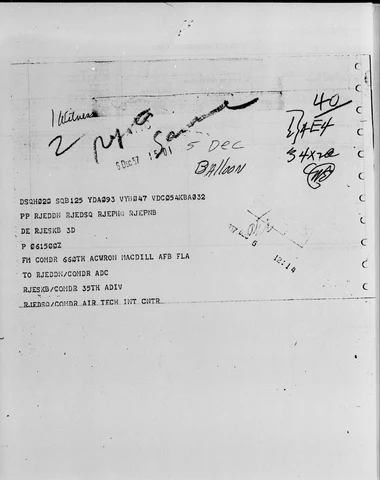 1 Witness
2
40
5 Dec 57 15 01
5 DEC
BALLOON
AE4
54X20
DSQH02G SQB125 YDA093 VYH047 VDC054KBA032
PP RJEDDN RJEDSQ RJEPHQ RJEPNB
DE RJESKB 3D
P 061500Z
6
12:14
FM COMDR 660TH ACWRON MACDILL AFB FLA
TO RJEDDN/COMDR ADC
RJESKB/COMDR 35TH ADIV
RJEDSQ/COMDR AIR TECH INT CNTR